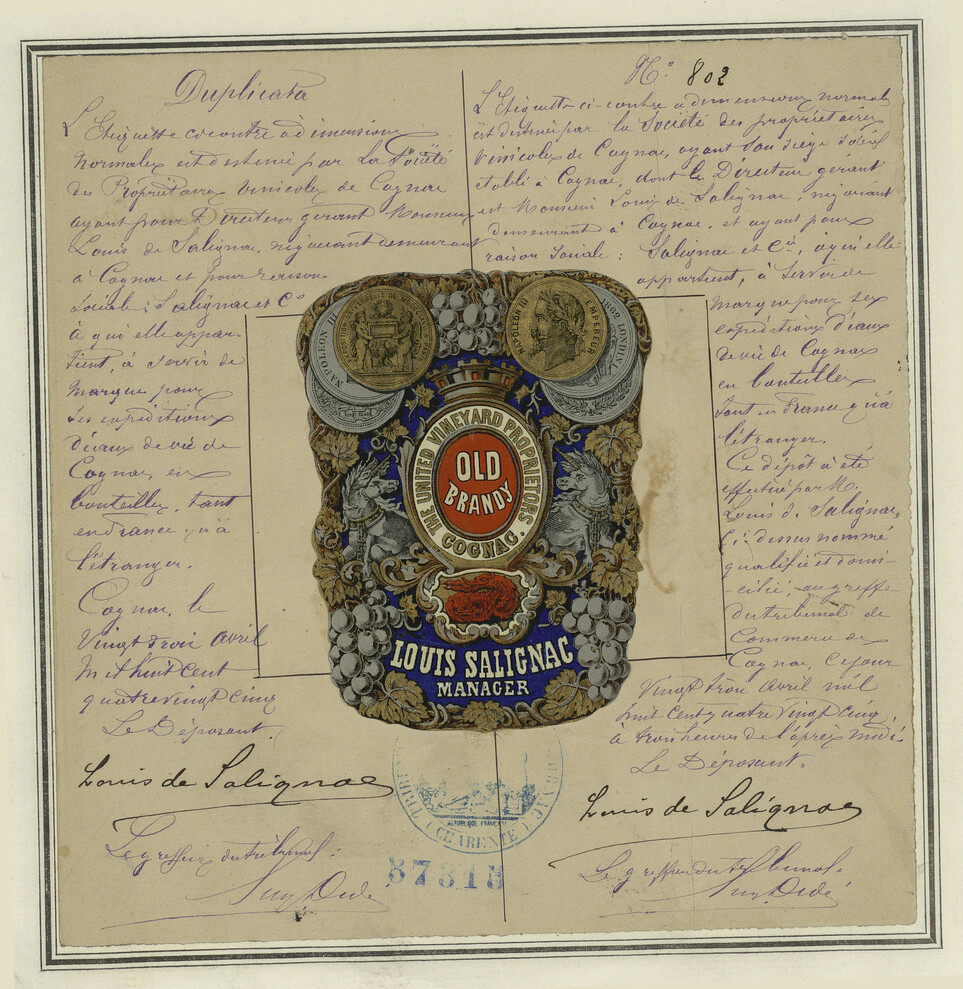 Duplicata
L'Etiquette ci contre à dimensions
normales est destinée par La Société
des Propriétaires Vinicoles de Cognac
ayant pour Directeur gérant Monsieur
Louis de Salignac, négociant demeurant
à Cognac et pour raison
Sociale : Salignac et Cie
à qui elle appar-
tient, à servir de
marque pour
ses expéditions
d'eaux de vie de
Cognac, en
bouteilles, tant
en France qu'à
l'étranger.
Cognac, le
Vingt trois avril
mil huit cent
quatre vingt cinq
Le Déposant.
Louis de Salignac
Le greffier du tribunal :
No 802
L'Etiquette ci-contre à dimensions normales
est destinée par la Société des propriétaires
Vinicoles de Cognac, ayant son siège social
établi à Cognac, dont le Directeur gérant
est Monsieur Louis de Salignac, négociant
demeurant à Cognac, et ayant pour
raison Sociale : Salignac et Cie, à qui elle
appartient, à servir de
marque pour ses
expéditions d'eaux
de vie de Cognac
en bouteilles
tant en France qu'à
l'étranger.
Ce dépôt a été
effectué par M.
Louis de Salignac,
ci-dessus nommé
qualifié et domi-
-cilié, au greffe
du tribunal de
Commerce de
Cognac, ce jour
Vingt trois avril mil
huit cent quatre vingt cinq,
à trois heures de l'après midi.
Le Déposant.
Louis de Salignac
Le greffier du tribunal.
NAPOLEON III
NAPOLEON III EMPEREUR
1862 LONDINI
THE UNITED VINEYARD PROPRIETORS.
COGNAC.
OLD
BRANDY
LOUIS SALIGNAC
MANAGER
REPUBLIQUE FRANÇAISE
(CHARENTE)
57315